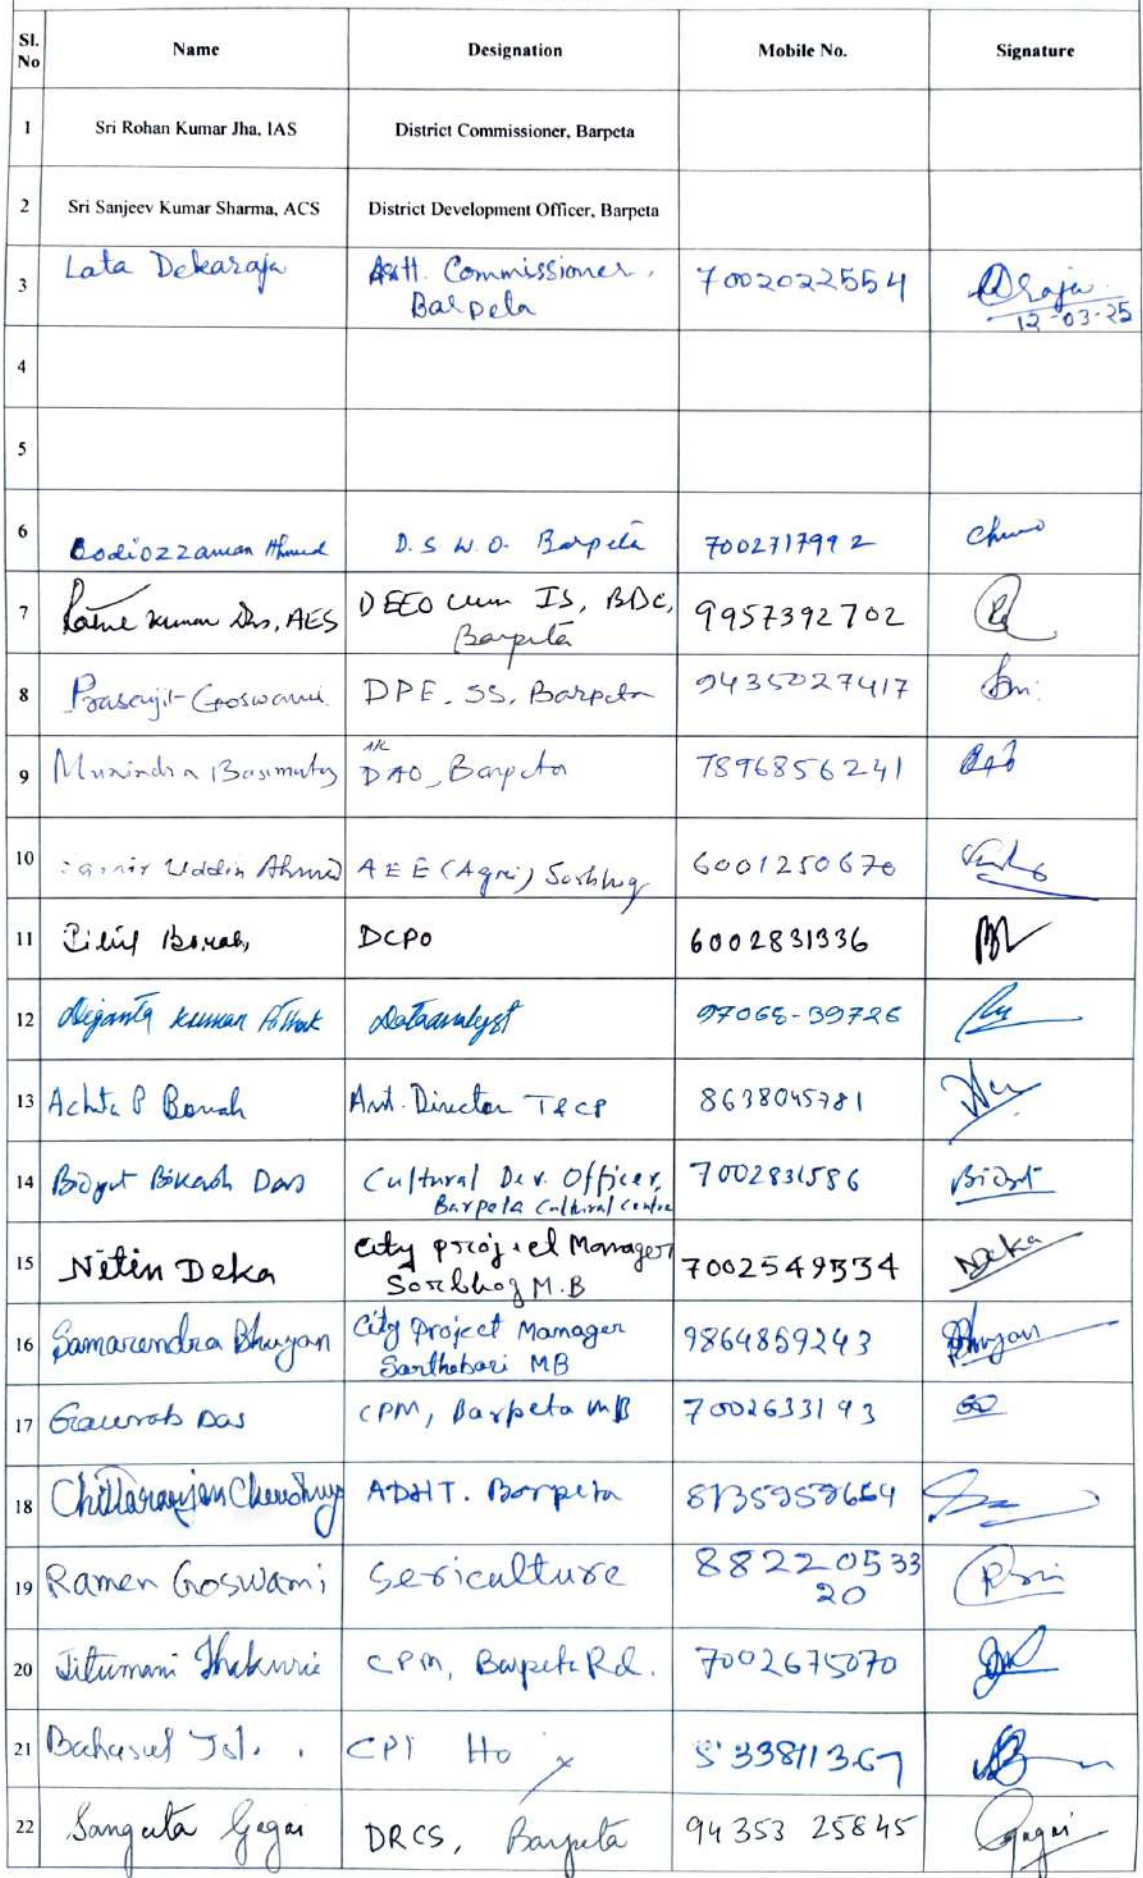 Sl. No Name Designation Mobile No. Signature
1 Sri Rohan Kumar Jha, IAS District Commissioner, Barpeta
2 Sri Sanjeev Kumar Sharma, ACS District Development Officer, Barpeta
3 Lata Dekaraja Asstt. Commissioner, 7002022554
Barpeta 12-03-25
4
5
6 Bodiozzaman Ahmed D. S. W. O. Barpeta 7002717992
7 Kumar Das, AES DEEO cum IS, BDC, 9957392702
Barpeta
8 Prasenjit Goswami DPE. SS, Barpeta 9435027417
9 Munindra Basumatary DAO, Barpeta 7896856241
10 Uddin Ahmed AEE (Agri) Sorbhog 6001250670
11 Borah, DCPO 6002831336
12 Diganta Kumar Pathak Dataanalyst 97065-39726
13 P Borah Asst. Director T&CP 8638045781
14 Bikash Das Cultural Dev. Officer, 7002831586
Barpeta Cultural Centre
15 Nitin Deka City project Manager 7002549534 Deka
Sorbhog M.B
16 Samarendra Bhuyan City Project Manager 9864859243 Bhuyan
Sarthebari MB
17 Gaurab Das CPM, Barpeta MB 7002633193
18 Chittaranjan Choudhury ADHT. Barpeta
19 Ramen Goswami Sericulture 88220533
20
20 Jitumani Thakuria CPM, Barpeta Rd. 7002675070
21 Isl.
22 Sangeeta Gogoi DRCS, Barpeta 94353 25845 Gogoi